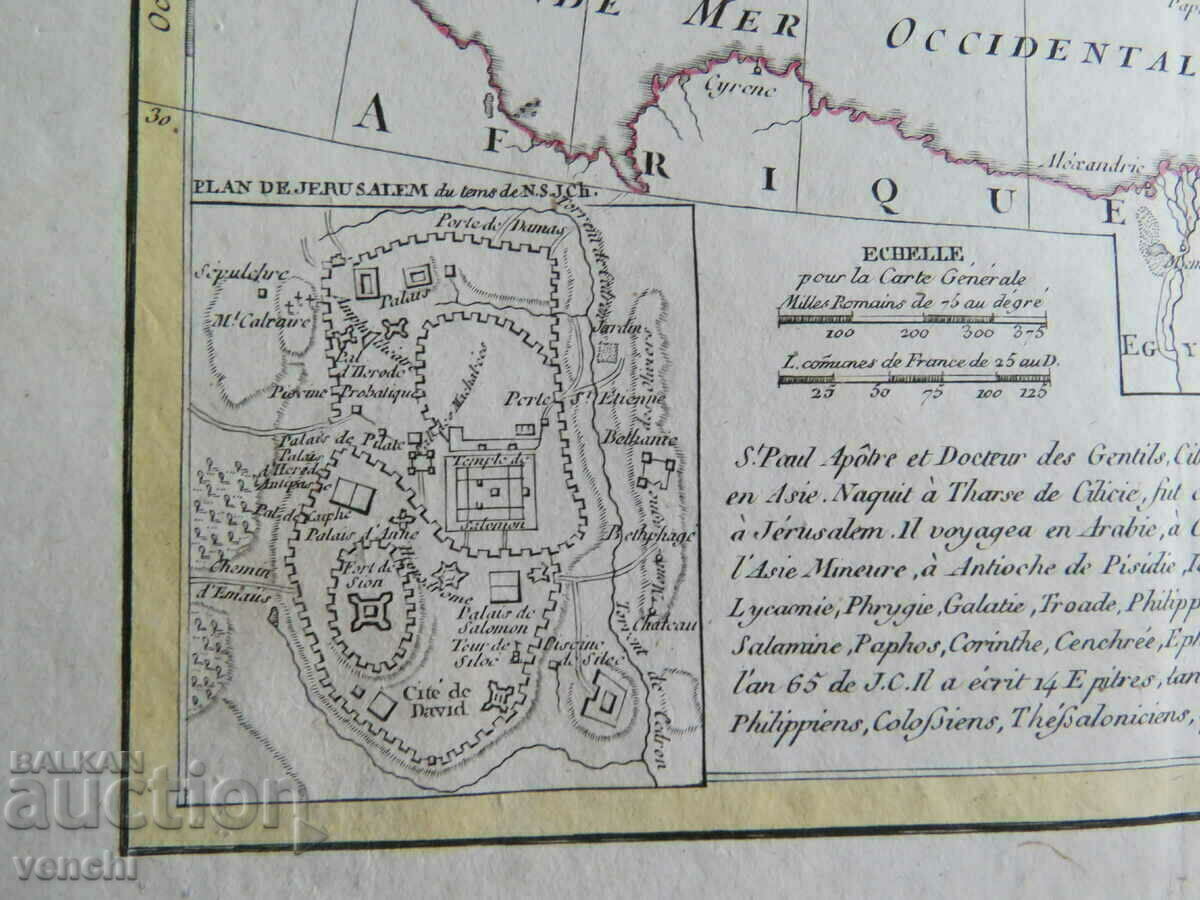 DE MER
OCCIDENTAL
Cyrene
30.
AFRIQUE
Aléxandrie
EGY
PLAN DE JERUSALEM du tems de N.S.J.Ch.
Porte de Damas
Sépulchre
Palais
Mt. Calvaire
Jardin
Pal
d'Herode
Piscine Probatique
Porte St. Etienne
Palais de Pilate
Bethanie
Palais
d'Herode
Antipas
Temple de
Salomon
Pal. de Caiphe
Palais d'Anne
Bethphagé
Fort de
Sion
Chemin
d'Emaüs
Palais de
Salomon
Chateau
Tour de
Siloé
Piscine
de Siloé
Cité de
David
Torrent de Cedron
ECHELLE
pour la Carte Générale
Milles Romains de 75 au degré
100 200 300 375
L. comunes de France de 25 au D.
25 50 75 100 125
St. Paul Apôtre et Docteur des Gentils, Cil
en Asie. Naquit à Tharse de Cilicie, fut
à Jérusalem. Il voyagea en Arabie, à
l'Asie Mineure, à Antioche de Pisidie,
Lycaonie, Phrygie, Galatie, Troade, Philipp
Salamine, Paphos, Corinthe, Cenchrée, Eph
l'an 65 de J.C. Il a écrit 14 Epitres, tan
Philippiens, Coloßiens, Théßaloniciens,
BALKAN
auction
venchi